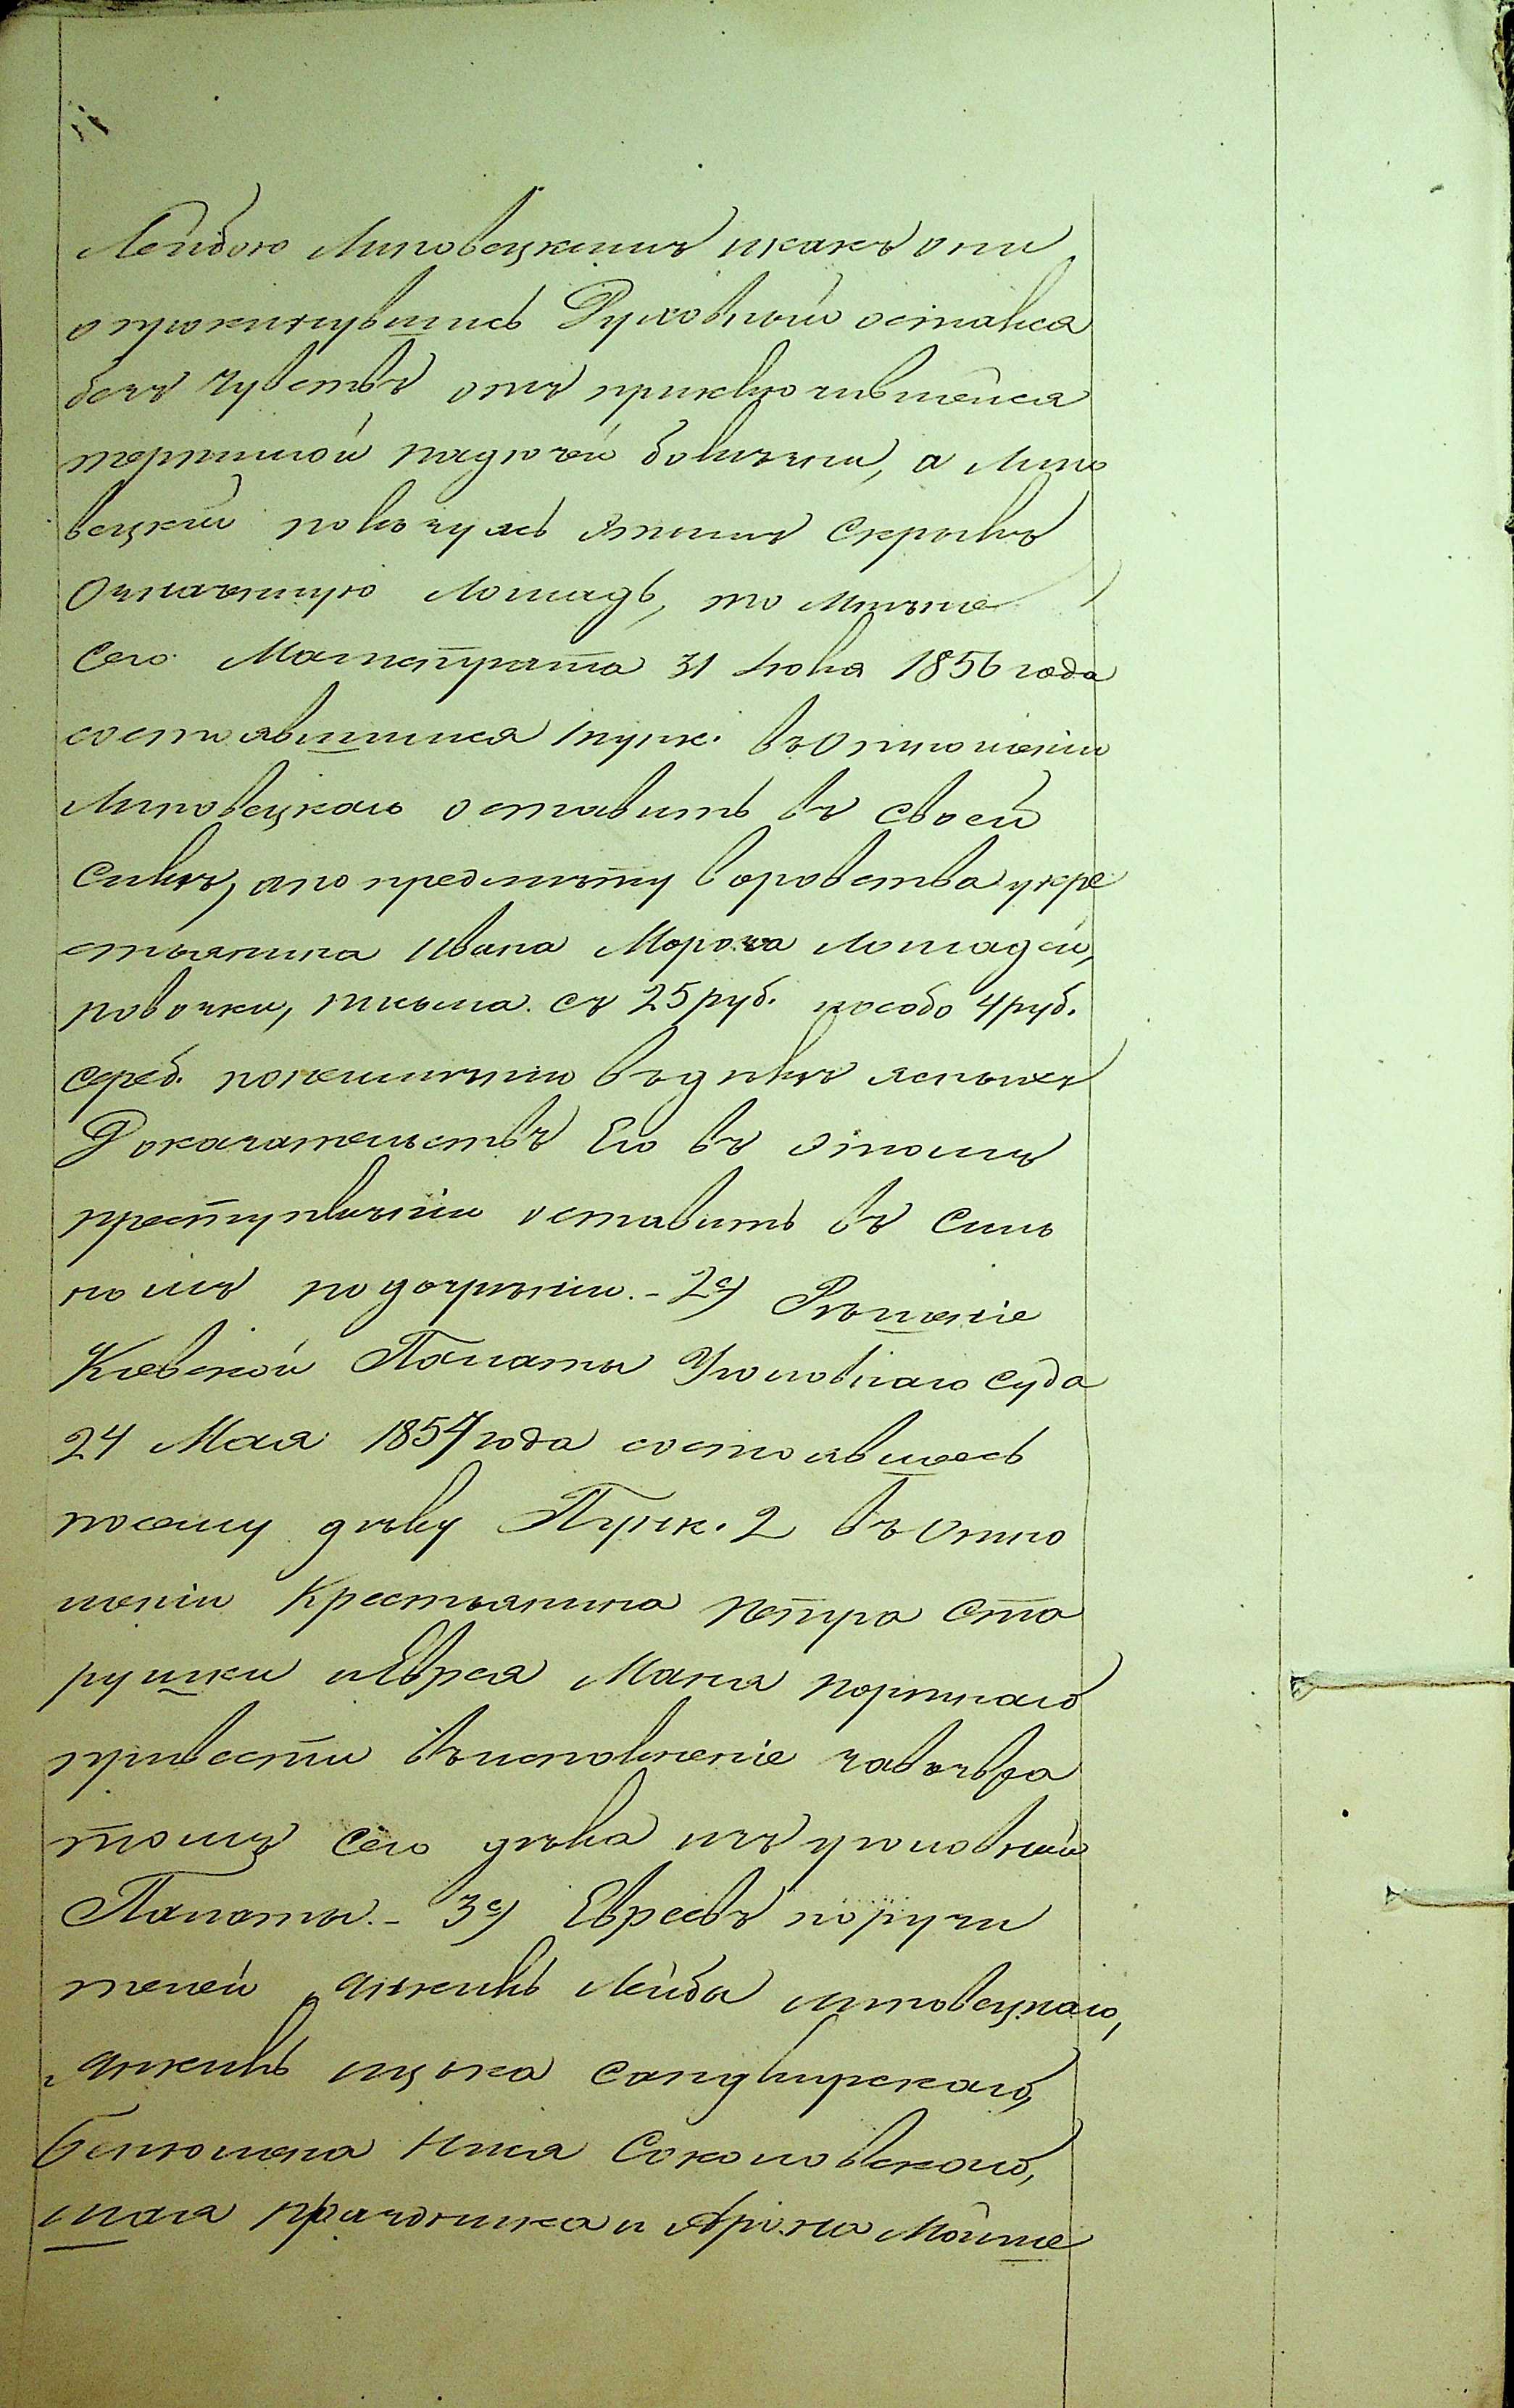 Лейбою Липовецкимъ икакъ они
опрокинувшись Духовный остался
безъ чувствъ отъ приключившейся
падючей болезни, а Липо
вецкий пользуясь этимъ скрылъ
Означенную Лошадь, то Мнѣние
Сего Магистрата 31 Іюля 1856 года
состоявшиися 1 пунк. въ Отношеніи
Липовецкаго оставить въ своей
силѣ, апо предмѣту воровства укре
стьянина Ивана Мороза Лошадей,
повозки, съ 25 руб. иособо 4 руб.
сереб. понеимѣнию въдѣлѣ ясныхъ
Доказательствъ Его въ этомъ
преступлении оставить въ Силь
номъ подозрѣніи. - 2е) Рѣшеніе
Кіевской Палаты Уголовнаго Суда
24 Мая 1857 года состоявшеесь
посему дѣлу Пунк. 2 въ Отно
шеніи Крестьянина Петра Ста
рушки иЕврея Маня Портнаго
привести въисполненіе завозвра
томъ Сего дѣла изъ уголовной
Палаты. - 3е) Евреевъ поручи
телей Янкиль Лейба Липовецкаго,
Янкиль Ицька
Беньюмена Соколовскаго,
и Арона Мойше